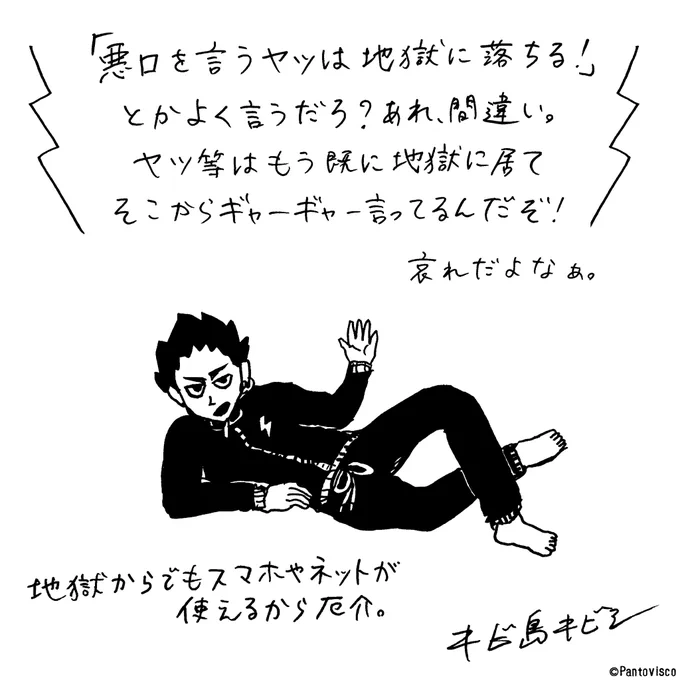 「悪口を言うヤツは地獄に落ちる!」
とかよく言うだろ?あれ、間違い。
ヤツ等はもう既に地獄に居て
そこからギャーギャー言ってるんだぞ!
哀れだよなぁ。
地獄からでもスマホやネットが
使えるから厄介。
キビ島キビシ
©Pantovisco